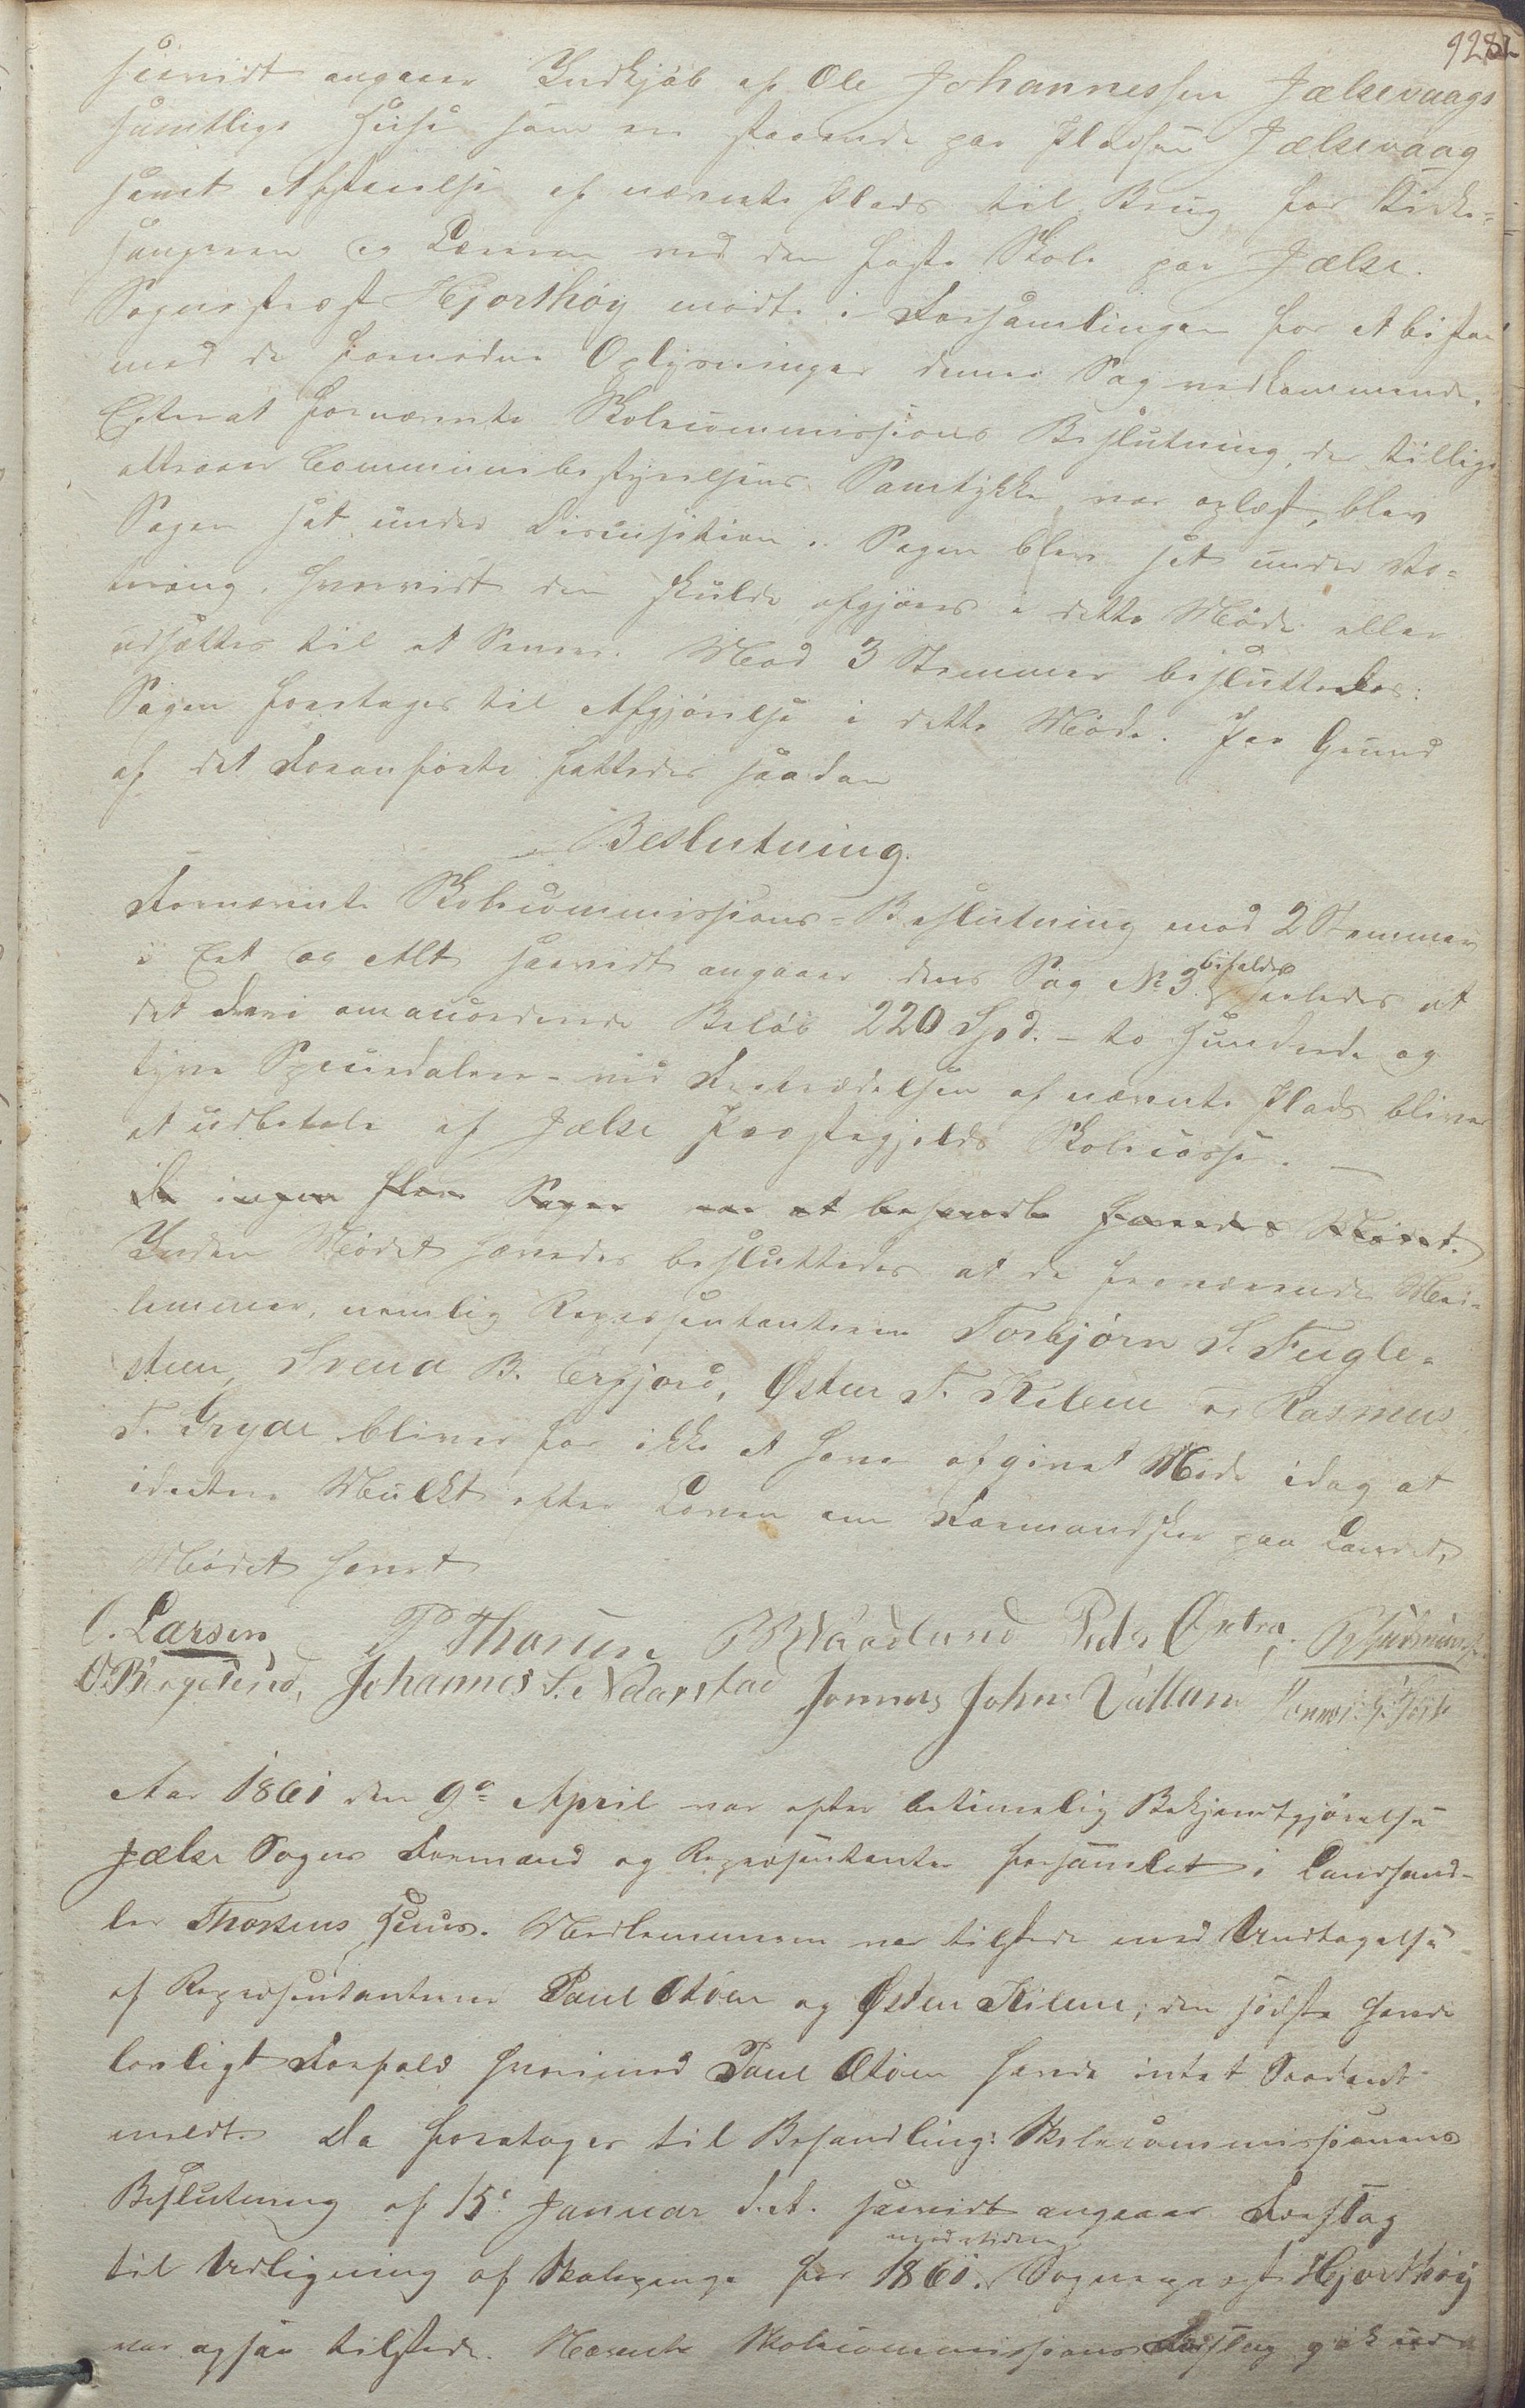 saavidt angaaer Indkjøb af Ole Johannessen Jælsevaags
samtlige Huse som ere staaende paa Pladsen Jælsevaag
samt Afstaaelse af nævnte Plads til Brug for Kirke-
sangeren og Læreren ved den faste Skole paa Jælse.
Sognepræst Hjorthøy mødte i Forsamlingen for at bistaa
med de fornødne Oplysninger denne Sag vedkommende.
Efterat fornævnte Skolecommissions Beslutning, der tillige
attraaer Communebestyrelsens Samtykke var oplæst, blev
Sagen sat under Discussition. Sagen blev sat under Vo-
tering, hvorvidt den skulde afgjøres i dette Møde eller
udsættes til et Senere. Mod 3 Stemmer besluttedes:
Sagen foretages til Afgjørelse i dette Møde. Paa Grund
af det Foranførte fattedes saadan
Beslutning.
Fornævnte Skolecommissions-Beslutning mod 2 Stemmer
i Eet og Alt saavidt angaaer dens Sag No 3 bifaldes saaledes at
det deri omanordnede Beløb 220 Spd. - to hundrede og
tyve Speciedaler - ved Fratrædelsen af nævnte Plads bliver
at udbetale af Jælse Præstegjelds Skolecasse. -
Da ingen flere Sager var at behandle hævedes Mødet.
Inden Mødet hævedes besluttedes at de fraværende Med-
lemmer, nemlig Repræsentanterne Torbjørn S. Fugle-
steen, Svend B. Erfjord, Østen T. Kilene og Rasmus
T. Gryde bliver for ikke at have afgivet Møde idag at
idømme Mulkt efter Loven om Formandsker paa Landet.
Mødet hævet
O. Larsen P Thorsen Peder Østraa,
Johannes S. Naarstad Jonnas Johns. Vatland
Aar 1861 den 9de April var efter betimelig Bekjendtgjørelse
Jælse Sogns Formænd og Repræsentanter forsamlet i Landhand-
ler Thorsens Huus. Medlemmerne var tilstede med Undtagelse
af Repræsentanterne Paul Østen og Østen Kilene; den sidste havde
lovligt Forfald hvorimod Paul havde intet Saadant
meldt. Da foretages til Behandling: Skolecommissionens
Beslutning af 15de Januar d. A. saavidt angaaer Forslag
til Udligning af Skolepenge for 1861. Sognepræst Hjorthøy
var ogsaa tilstede. Nævnte Skolecommissions Forslag gik ud